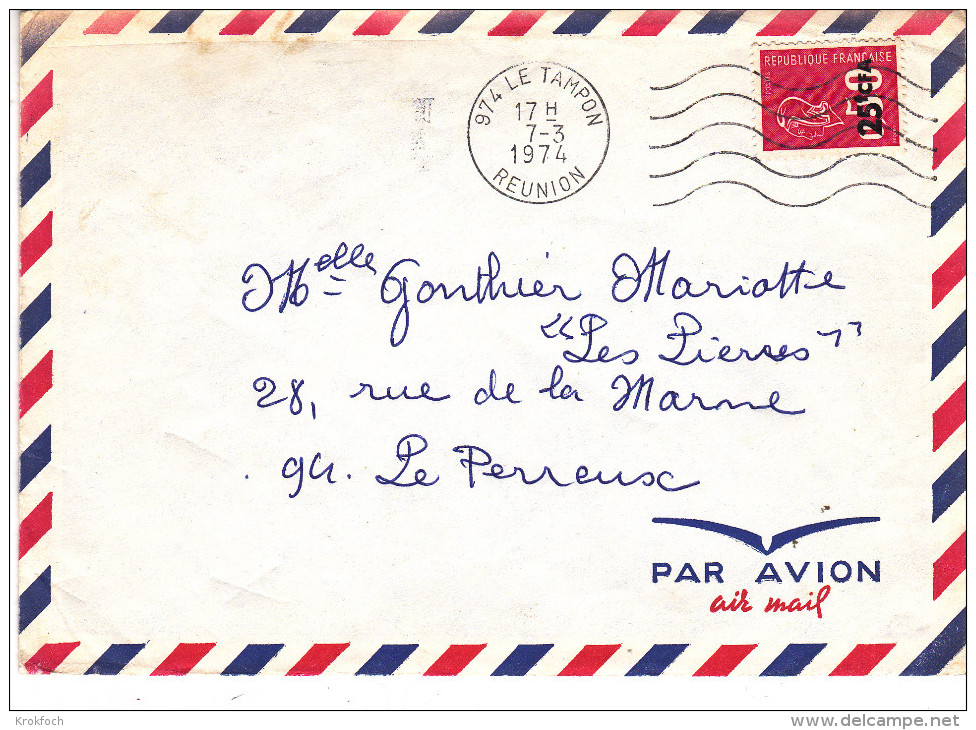 974 LE TAMPON
17 H
7-3
1974
REUNION
REPUBLIQUE FRANÇAISE
POSTES
0,50
25F CFA
Melle Gonthier Mariatte
"Les Pierres"
28, rue de la Marne
94. Le Perreux
PAR AVION
air mail
Krokfoch
www.delcampe.net